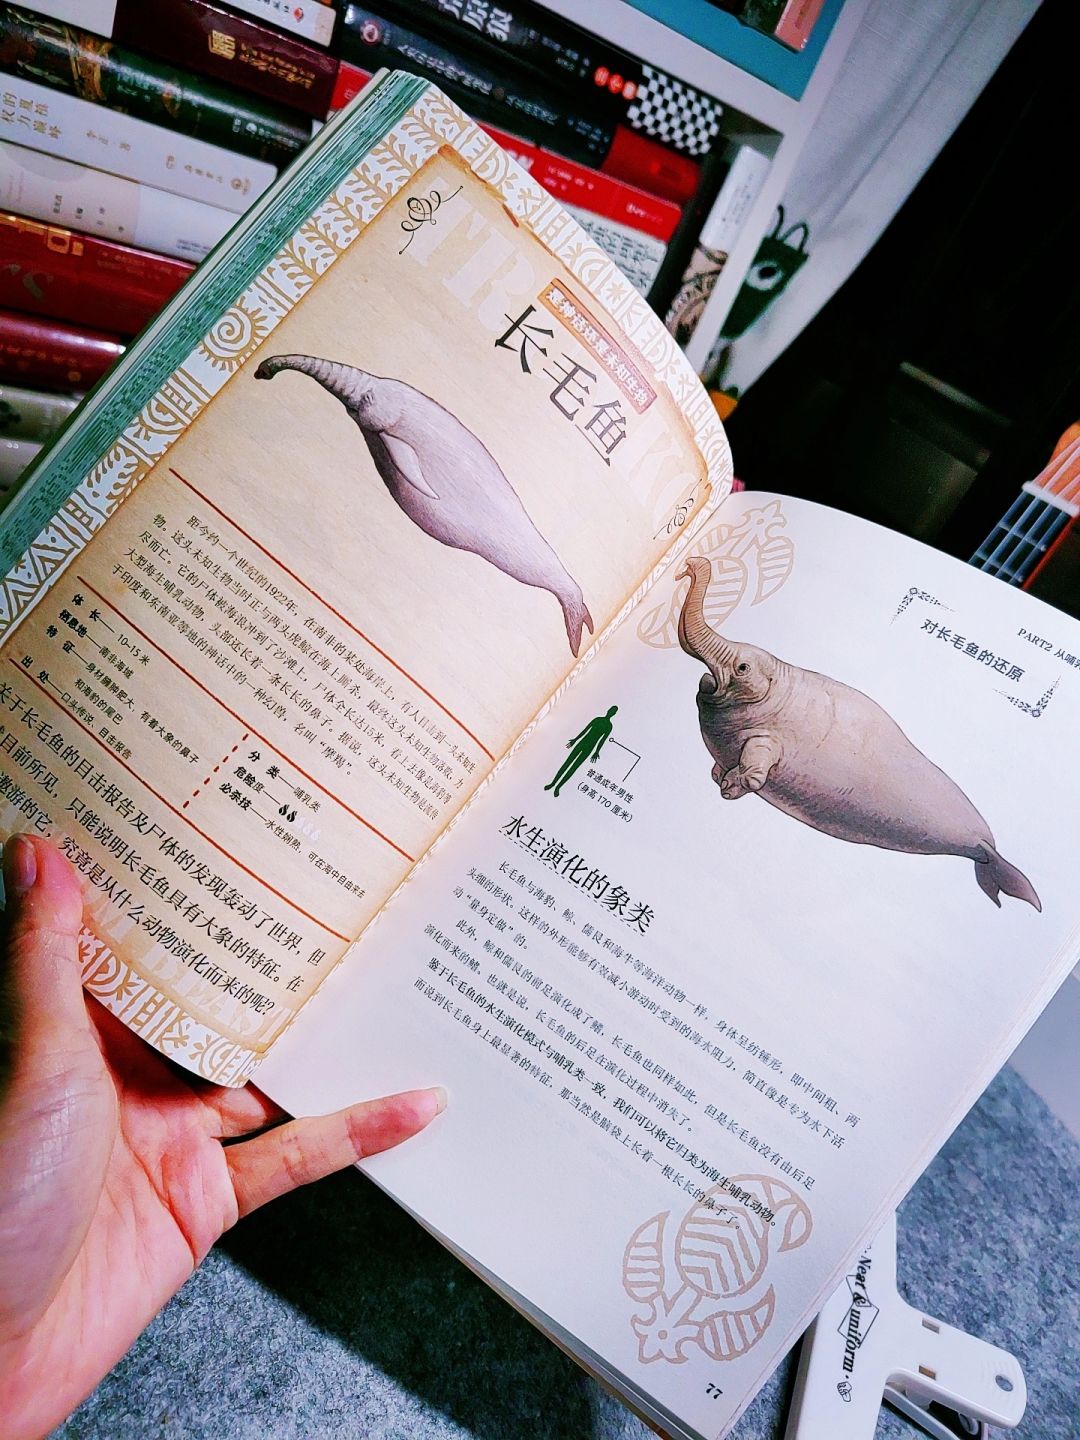 TRUNKO
是神话还是未知生物
长毛鱼
距今约一个世纪的1922年，在南非的某处海岸上，有人目击到一头未知生
物。这头未知生物当时正与两头虎鲸在海上厮杀，最终这头未知生物落败，力
尽而亡。它的尸体被海浪冲到了沙滩上，尸体全长达15米，看上去像是海豹等
大型海生哺乳动物，头部还长着一条长长的鼻子。据说，这头未知生物是流传
于印度和东南亚等地的神话中的一种幻兽，名叫“摩羯”。
体 长——10-15 米
栖息地——南非海域
特 征——身材臃肿肥大，有着大象的鼻子
和海豹的尾巴
出 处——口头传说、目击报告
分 类——哺乳类
危险度——
必杀技——水性娴熟，可在海中自由来去
关于长毛鱼的目击报告及尸体的发现轰动了世界，但
目前所见，只能说明长毛鱼具有大象的特征。在
遨游的它，究竟是从什么动物演化而来的呢？
PART2 从哺乳
对长毛鱼的还原
普通成年男性
(身高 170 厘米)
水生演化的象类
长毛鱼与海豹、鲸、儒艮和海牛等海洋动物一样，身体呈纺锤形，即中间粗、两
头细的形状。这样的外形能够有效减小游动时受到的海水阻力，简直像是专为水下活
动“量身定做”的。
此外，鲸和儒艮的前足演化成了鳍，长毛鱼也同样如此，但是长毛鱼没有由后足
演化而来的鳍。也就是说，长毛鱼的后足在演化过程中消失了。
鉴于长毛鱼的水生演化模式与哺乳类一致，我们可以将它归类为海生哺乳动物。
而说到长毛鱼身上最显著的特征，那当然是脑袋上长着一根长长的鼻子了。
77
Near & uniform